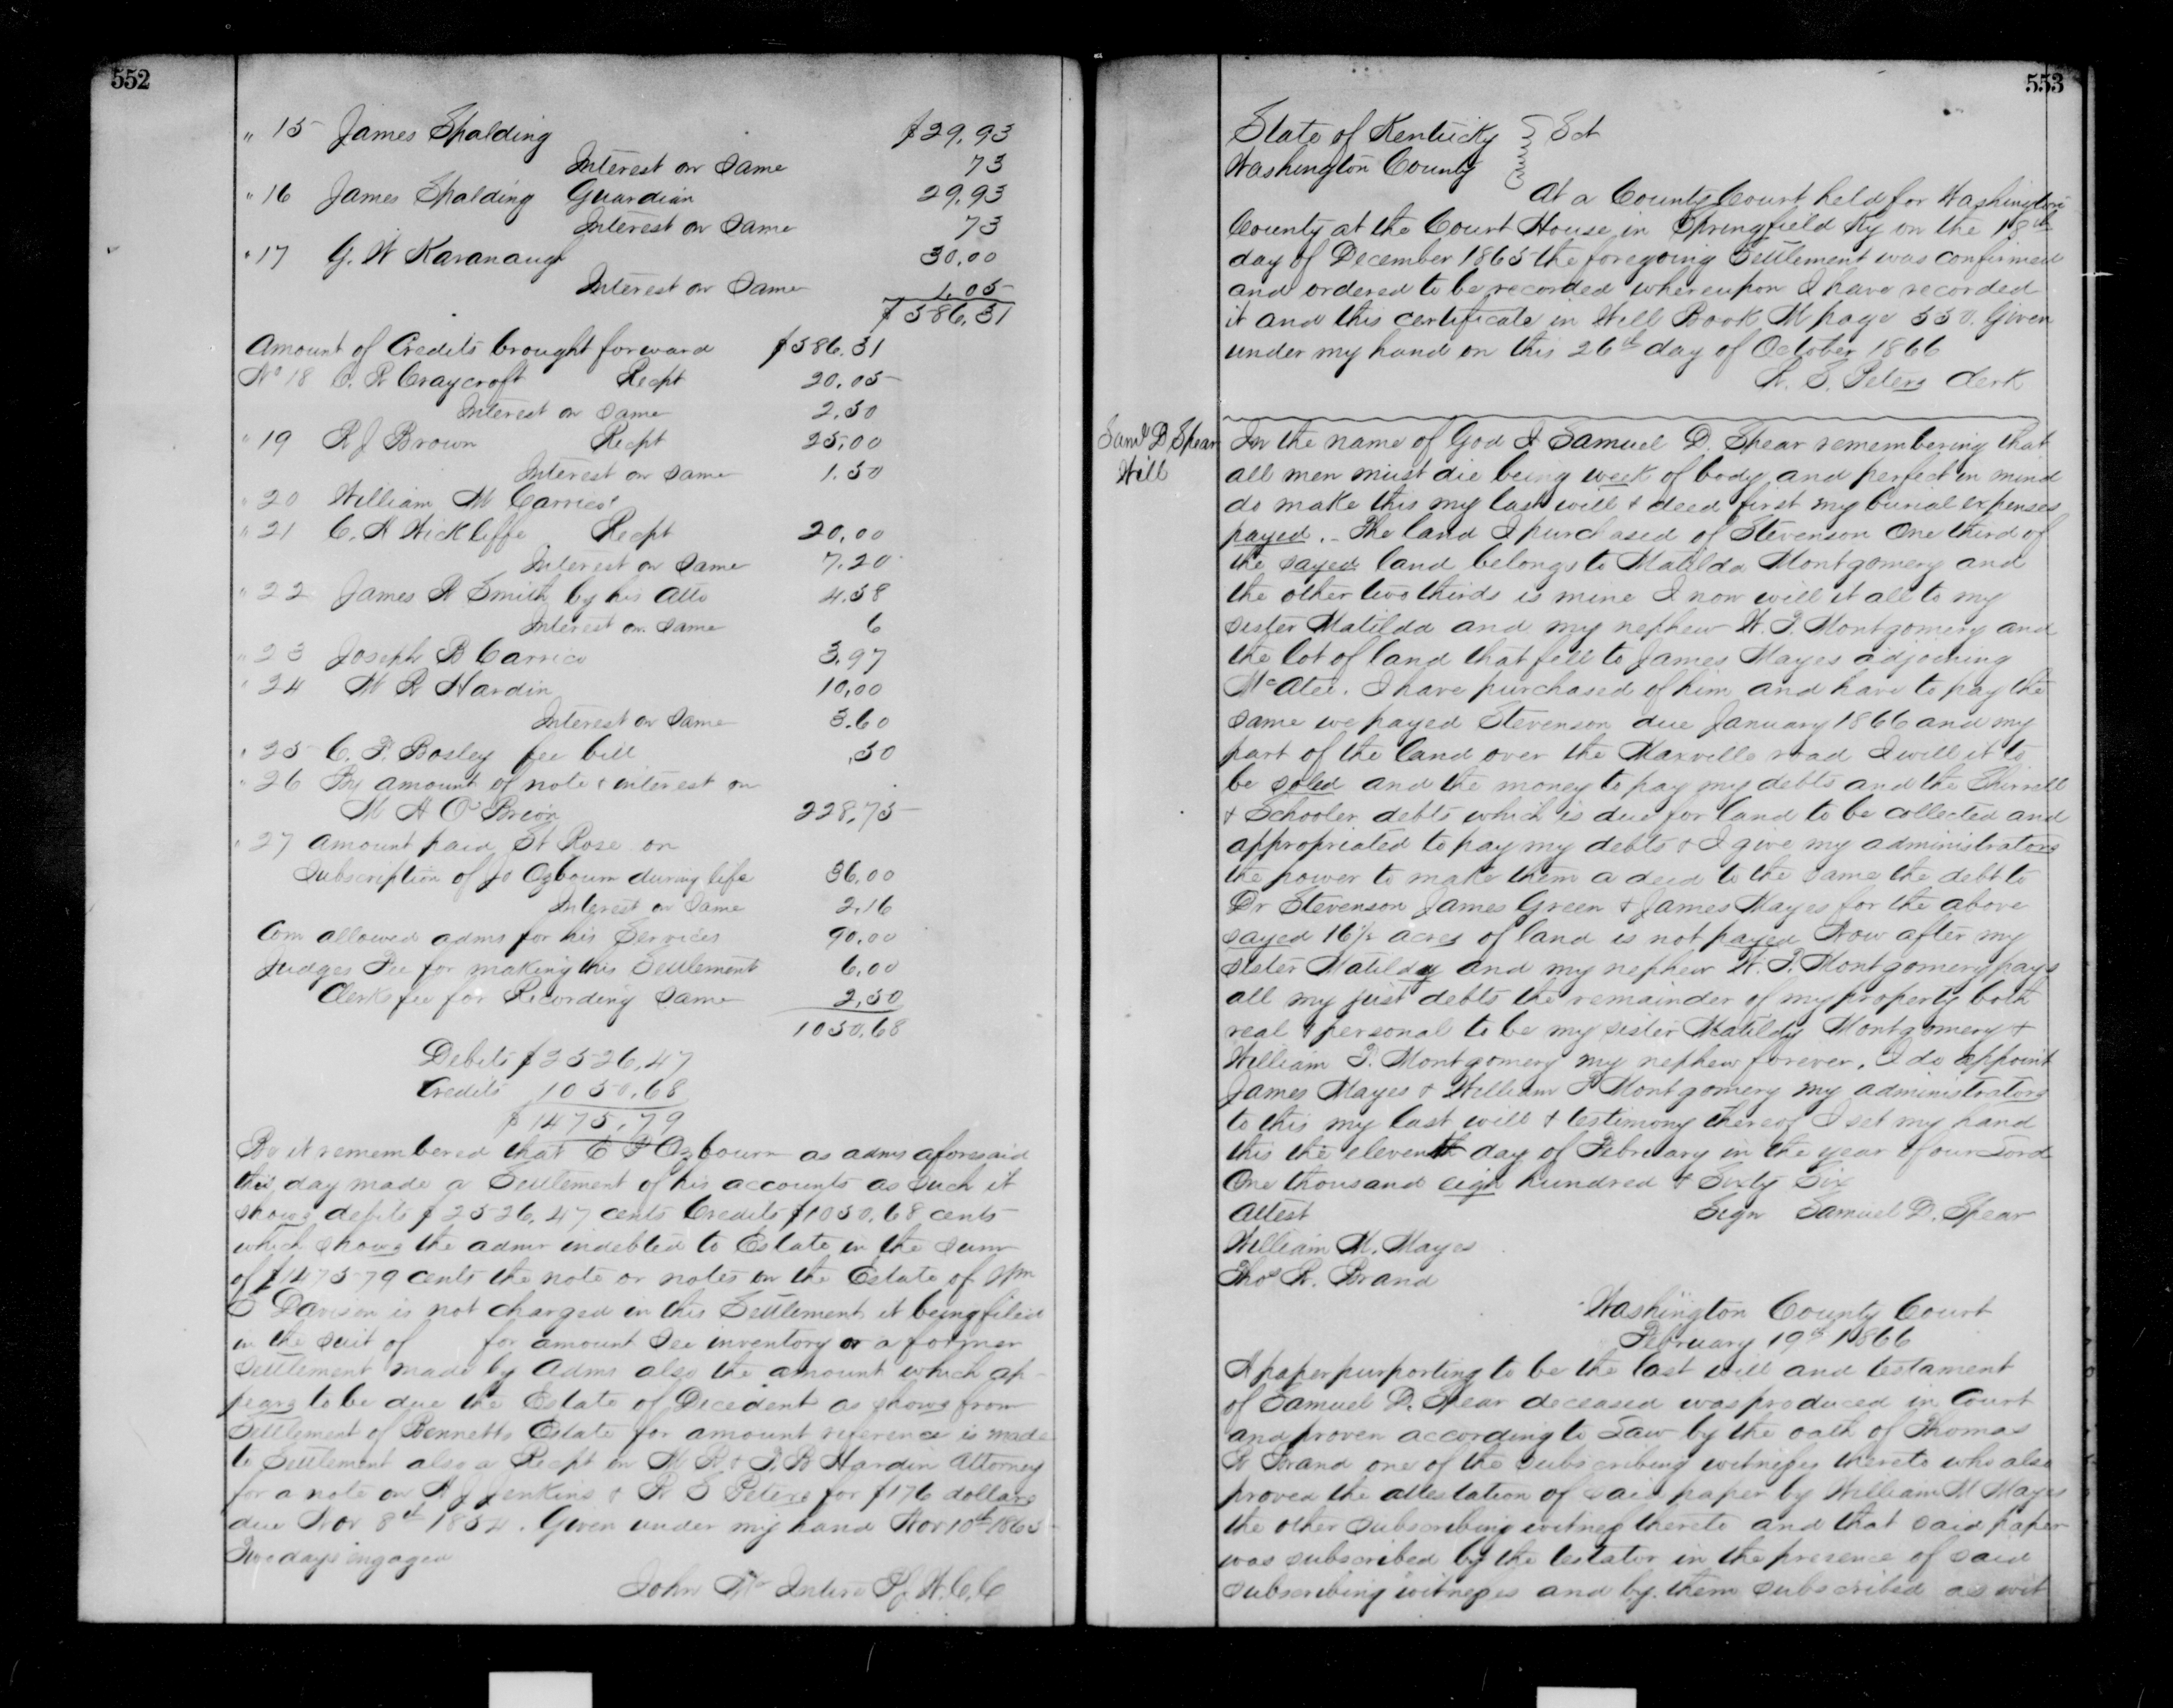 552
" 15 James Spalding $29.93
Interest on Same 73
" 16 James Spalding Guardian 29.93
Interest on Same 73
" 17 G. W Kavanaugh 30.00
Interest on Same 1.05
$586.31
Amount of Credits brought forward $586.31
No 18 C. R Craycroft Recpt 20.05
Interest on Same 2.50
" 19 R J Brown Recpt 25.00
Interest on Same 1.50
" 20 William M Carrico
" 21 C. A Wickliffe Recpt 20.00
Interest on Same 7.20
" 22 James R Smith by his Atto 4.58
Interest on Same 6
" 23 Joseph B Carrico 3.97
" 24 M R Hardin 10.00
Interest on Same 3.60
" 25 C. F. Bosley fee bill .50
" 26 By amount of note & interest on
M H O'Brion 228.75
" 27 Amount paid St Rose on
Subscription of Jo Ozbourn during life 36.00
Interest on Same 2.16
Com allowed admr for his Services 90.00
Judges Fee for making this Settlement 6.00
Clerks fee for Recording Same 2.50
1050.68
Debits $2526.47
Credits 1050.68
$1475.79
Be it remembered that E P Ozbourn as admr aforesaid
this day made a Settlement of his accounts as such it
shows debits $2526.47 cents Credits $1050.68 cents
which shows the admr indebted to Estate in the sum
of $1475 79 cents the note or notes on the Estate of Wm
Davison is not charged in this Settlement it being filed
in the suit of for amount See inventory or a former
Settlement made by Admr also the amount which ap-
pears to be due the Estate of Decedent as shows from
Settlement of Bennetts Estate for amount reference is made
to Settlement also a Recpt on M R & T. B Hardin Attorney
for a note on A J Jenkins & R S Peters for $176 dollars
due Nov 8th 1854. Given under my hand Nov 10th 1865
Two days engaged
John McIntire Pj W. C. C
553
State of Kentucky } Sct
Washington County
At a County Court held for Washington
County at the Court House in Springfield Ky on the 18th
day of December 1865 the foregoing Settlement was confirmed
and ordered to be recorded whereupon I have recorded
it and this certificate in Will Book M page 550. Given
under my hand on this 26th day of October 1866
W. S. Peters Clerk
Saml D Spear
Will
In the name of God I Samuel D. Spear remembering that
all men must die being week of body and perfect in mind
do make this my last will & deed first my burial expenses
payed. - The land I purchased of Stevenson One third of
the sayed land belongs to Matilda Montgomery and
the other two thirds is mine I now will it all to my
sister Matilda and my nephew W. T. Montgomery and
the lot of land that fell to James Mayes adjoining
McAtee. I have purchased of him and have to pay the
same we payed Stevenson due January 1866 and my
part of the land over the Maxville road I will it to
be soled and the money to pay my debts and the Shirrell
& Schooler debts which is due for land to be collected and
appropriated to pay my debts & I give my administrators
the power to make them a deed to the same the debt to
Dr Stevenson James Green & James Mayes for the above
sayed 16½ acres of land is not payed Now after my
sister Matilday and my nephew W. T. Montgomery pays
all my just debts the remainder of my property both
real & personal to be my sister Matildy Montgomery &
William T. Montgomery my nephew forever. I do appoint
James Mayes & William T Montgomery my administrators
to this my last will & testimony thereof I set my hand
this the eleventh day of February in the year of our Lord
One thousand eigh hundred & Sixty Six
Attest Sign Samuel D. Spear
William M. Mayes
Thos R. Brand
Washington County Court
February 19th 1866
A paper purporting to be the last will and testament
of Samuel D. Spear deceased was produced in Court
and proven according to Law by the oath of Thomas
R Brand one of the subscribing witneses thereto who also
proved the attestation of said paper by William M Mayes
the other subscribing witness thereto and that said paper
was subscribed by the testator in the presence of said
subscribing witneses and by them subscribed as wit